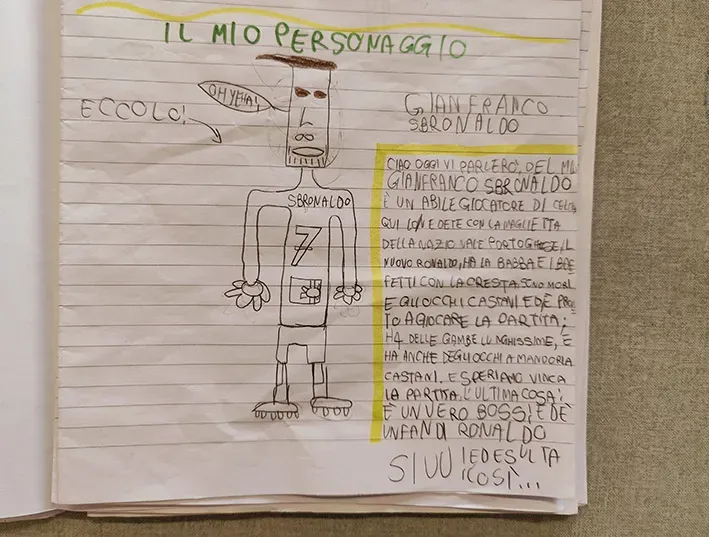 IL MIO PERSONAGGIO
OH YEHA!
ECCOLO!
GIANFRANCO
SBRONALDO
SBRONALDO
7
CIAO OGGI VI PARLERÒ DEL MI
GIANFRANCO SBRONALDO
È UN ABILE GIOCATORE DI
QUI LO VEDETE CON LA MAGLIETTA
DELLA NAZIONALE PORTOGHESE IL
NUOVO RONALDO, HA LA BABBA E I
FETTI CON LA CRESTA, SONO MORI
E GLI OCCHI CASTANI ED È
TO A GIOCARE LA PARTITA;
HA DELLE GAMBE LUNGHISSIME, E
HA ANCHE DEGLI OCCHI A MANDORLA
CASTANI. E SPERIAMO VINCA
LA PARTITA. L'ULTIMA COSA!
È UN VERO BOSS! ED È
UN FAN DI RONALDO
SIUU IEDESULTA
COSÌ...